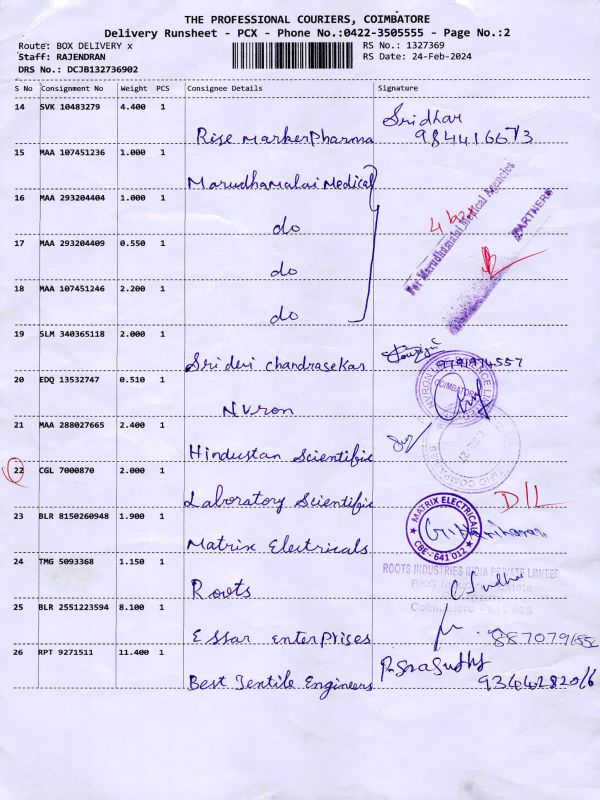 THE PROFESSIONAL COURIERS, COIMBATORE
Delivery Runsheet - PCX - Phone No.:0422-3505555 - Page No.:2
Route: BOX DELIVERY x RS No.: 1327369
Staff: RAJENDRAN RS Date: 24-Feb-2024
DRS No.: DCJB132736902
S No Consignment No Weight PCS Consignee Details Signature
14 SVK 10483279 4.400 1 Rise MarkerPharma Sridhar
15 MAA 107451236 1.000 1 Marudhamalai Medical
16 MAA 293204404 1.000 1 do
17 MAA 293204409 0.550 1 do
18 MAA 107451246 2.200 1 do
For Marudhamalai Medical Agencies
PARTNERS
19 SLM 340365118 2.000 1 Sridevi chandrasekar 9791974557
20 EDQ 13532747 0.510 1 Nvron
COIMBATORE
21 MAA 288027665 2.400 1 Hindustan Scientific
22 CGL 7000870 2.000 1 Laboratory Scientific D/L
23 BLR 8150260948 1.900 1 Matrix Electricals
MATRIX ELECTRICALS
CBE - 641 012
24 TMG 5093368 1.150 1 Roots
ROOTS INDUSTRIES INDIA PRIVATE LIMITED
25 BLR 2551223594 8.100 1 Essar enterprises
26 RPT 9271511 11.400 1 Best Textile Engineers